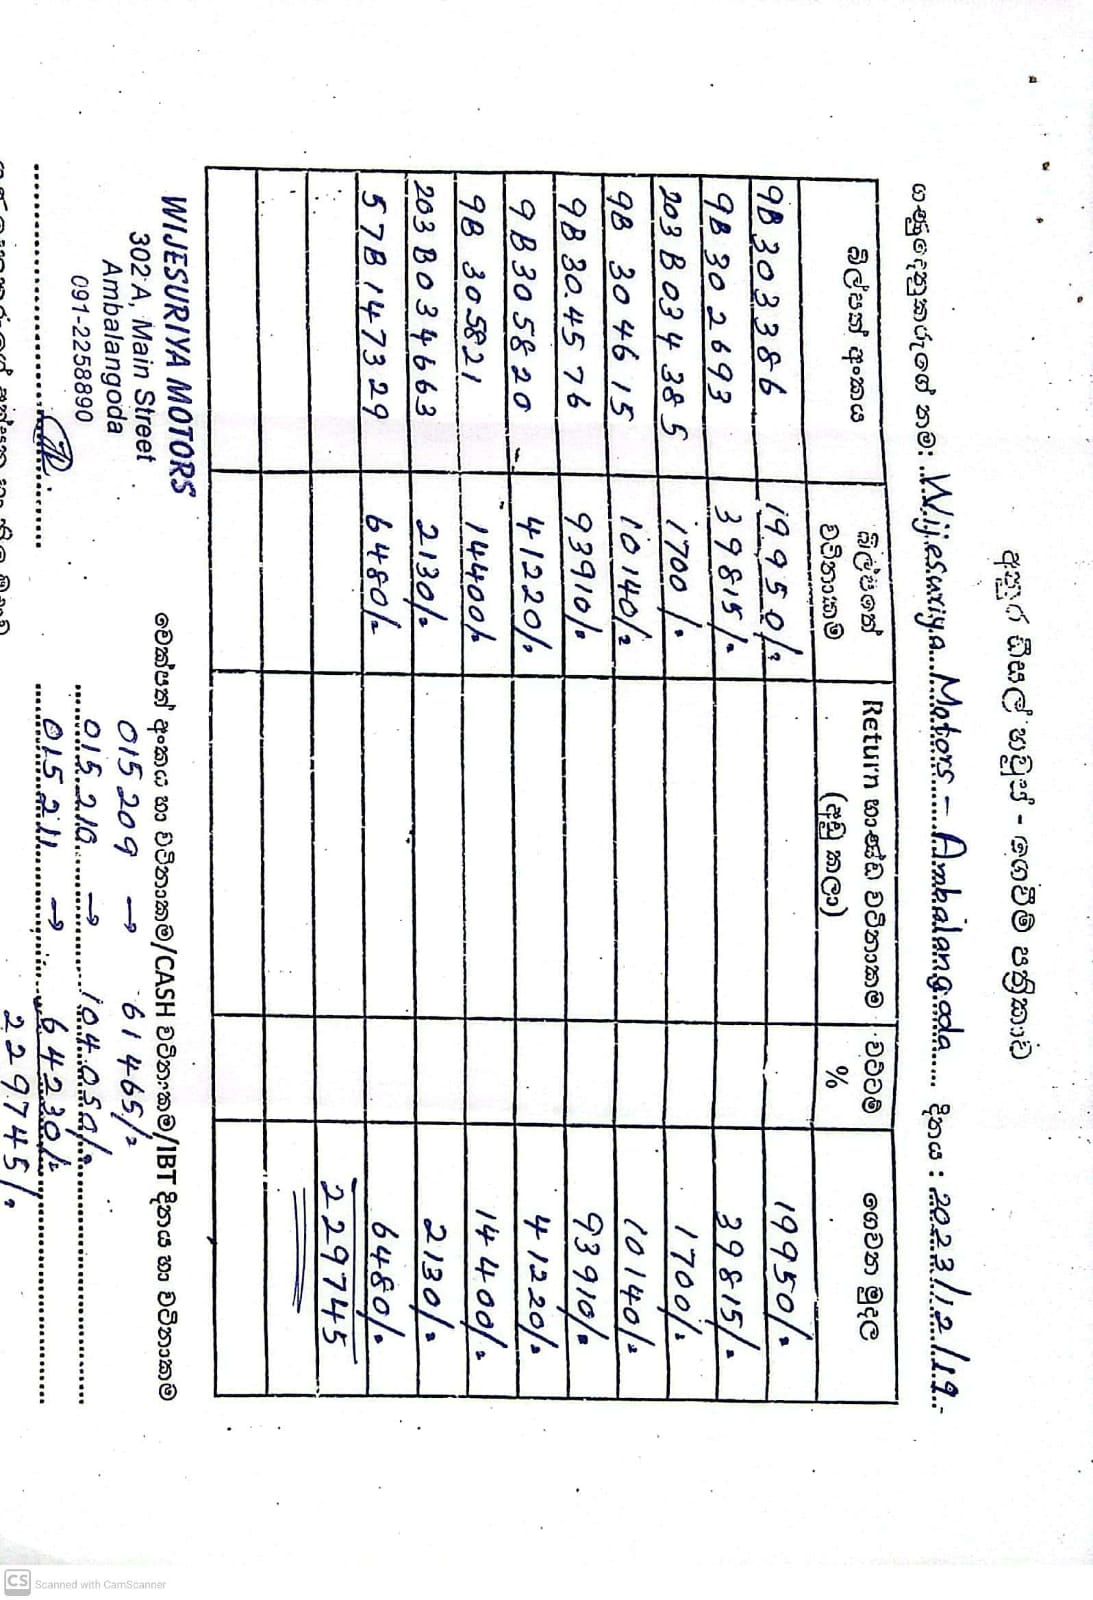 අතුර ඩීසල් හවුස් - ගෙවීම් පත්‍රිකාව
ගණුදෙනුකරුගේ නම: Wijesuriya Motors - Ambalangoda දිනය : 2023/12/19
බිල්පත් අංකය බිල්පතේ වටිනාකම Return භාණ්ඩ වටිනාකම (අඩු කලා) වට්ටම් % ගෙවන මුදල
9B 303386 19950/= 19950/=
9B 302693 39815/= 39815/=
203 B034385 1700/= 1700/=
9B 304615 10140/= 10140/=
9B 304576 93910/= 93910/=
9B 305820 41220/= 41220/=
9B 305821 14400/= 14400/=
203 B034663 2130/= 2130/=
57B 147329 6480/= 6480/=
229745
WIJESURIYA MOTORS
302 A, Main Street
Ambalangoda
091-2258890
චෙක්පත් අංකය හා වටිනාකම/CASH වටිනාකම/IBT දිනය හා වටිනාකම
015209 → 61465/=
015210 → 104050/=
015211 → 64230/=
229745/=
CS Scanned with CamScanner